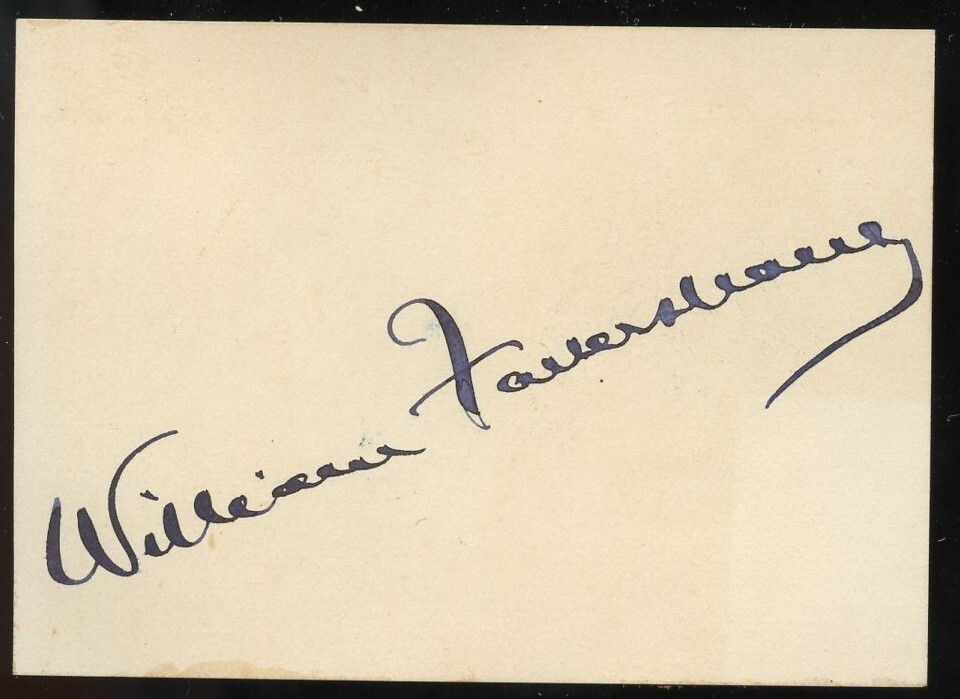 William Faversham